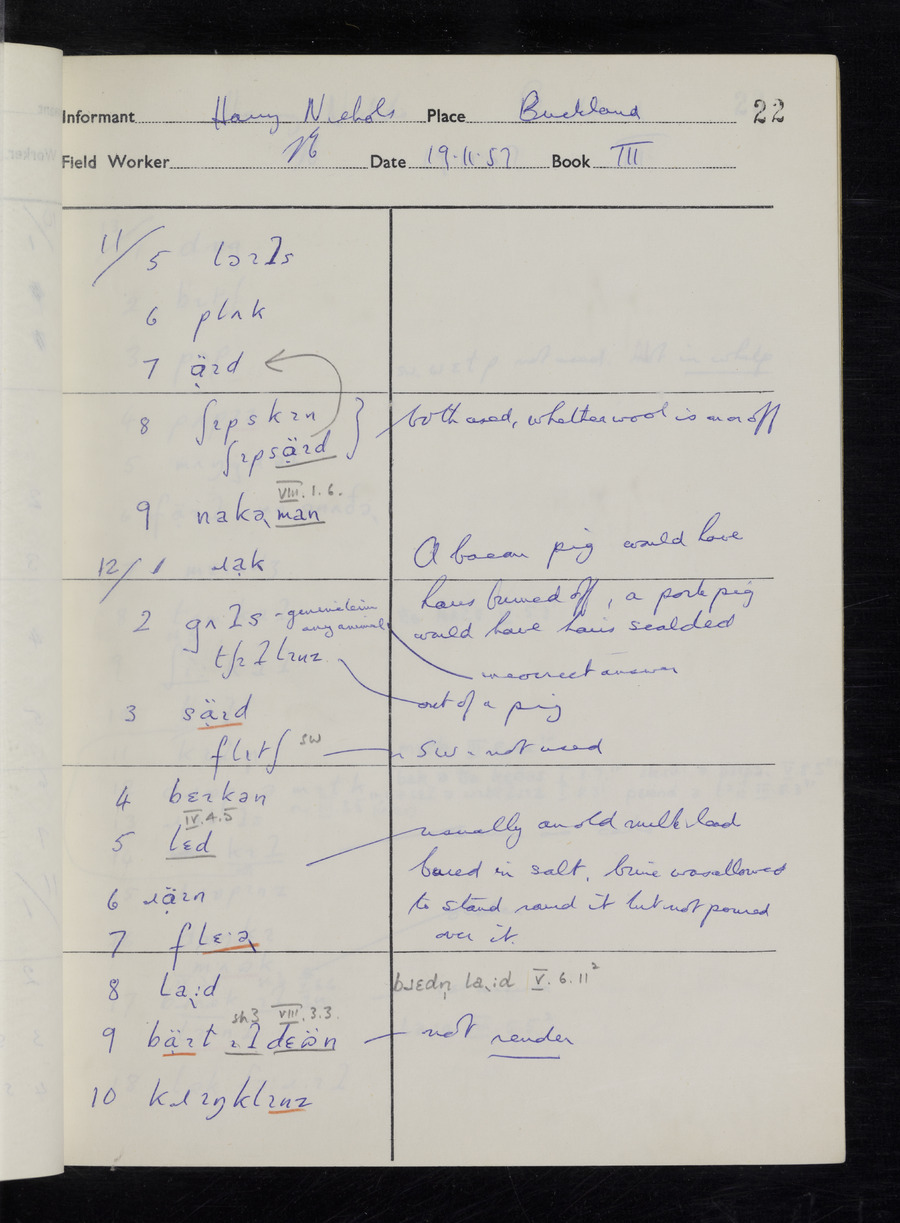 Informant Harry Nichols Place Buckland 22
Field Worker Date 19.11.57 Book III
11/5 lɔɪɫs
6 plʌk
7 ạ̈ɪd
8 ʃɪpskɪn
ʃɪpsạ̈ɪd
both used, whether wool is on or off
VIII.1.6.
9 nakəman
12/1 ɹak
A bacon pig would have
hairs burned off, a pork pig
would have hairs scalded
2 gʌɫs - generic term
any animal
incorrect answer
tʃɪɫɪnz
out of a pig
3 sạ̈ɪd
flɪtʃ sw
sw. not used
4 bɛɪkən
IV.4.5
5 lɛd
usually an old milk lead
6 ɹạ̈ɪn
buried in salt, brine was allowed
to stand round it but not poured
over it.
7 flɛ·ə
8 la̘:d
bɹɛdn̩ la̘:d V.6.11²
sh3 VIII.3.3.
9 bạ̈ɪt ɪɫ dɛön
not render
10 kɹɪŋklɪnz